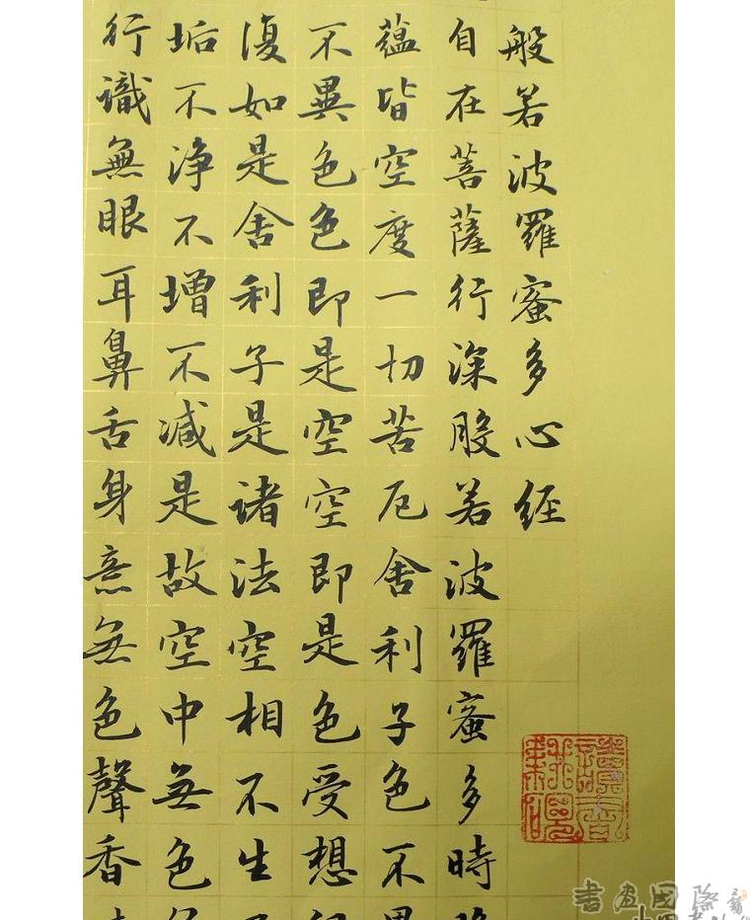 般若波羅蜜多心经
自在菩薩行深股若波羅蜜多時
蘊皆空度一切苦厄舍利子色不
不異色色即是空空即是色受想
復如是舍利子是诸法空相不生
垢不净不增不减是故空中無色
行識無眼耳鼻舌身意無色聲香
書画國際